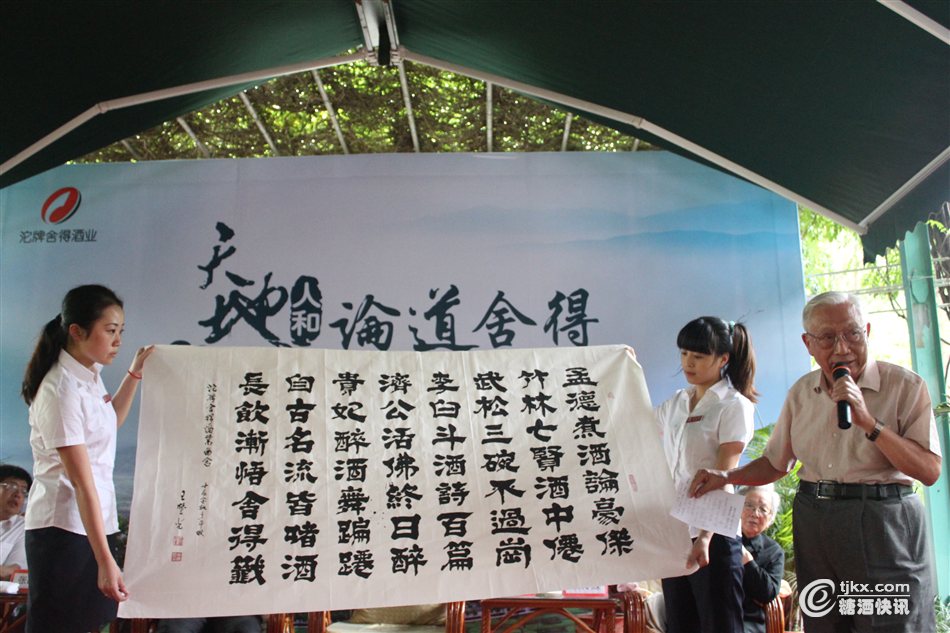 沱牌舍得酒业
天地人和
論道舍得
孟德煮酒論豪傑
竹林七賢酒中僊
武松三碗不過崗
李白斗酒詩百篇
濟公活佛終日醉
貴妃醉酒舞蹁躚
自古名流皆嗜酒
長飲漸悟舍得籤
tjkx.com
糖酒快讯